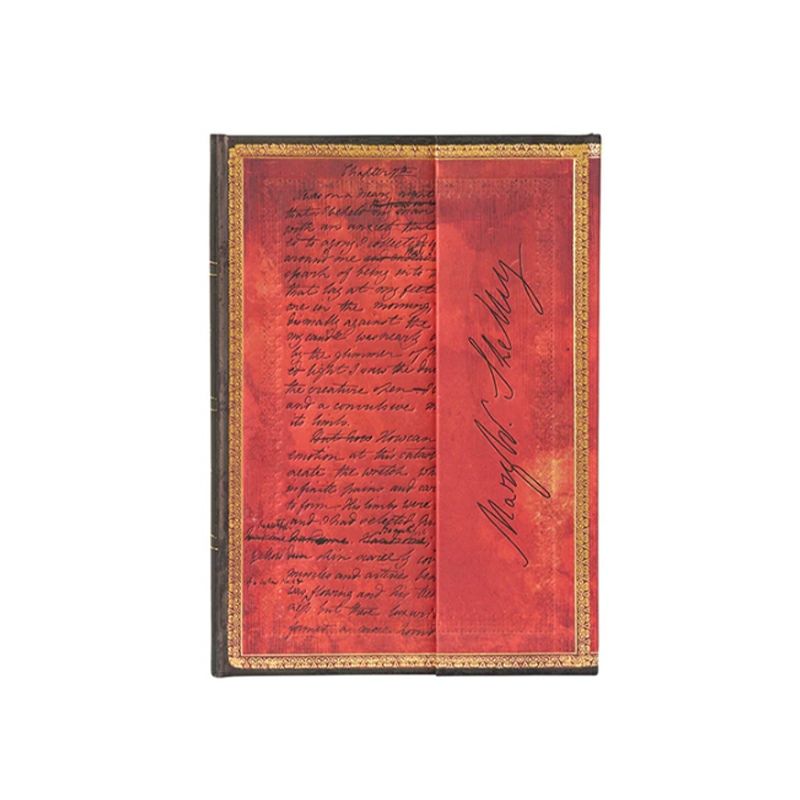 Chapter 7th
It was on a dreary night
that I beheld my man
with an anxiety that
ed to agony I collect
around me
spark of being into
that lay at my feet
one in the morning,
dismally against the
my candle was nearly
by the glimmer of
ed light I saw the du
the creature open
and a convulsive m
its limbs.
How can
emotion at this catast
create the wretch
infinite pains and car
to form His limbs were
and I had selected
handsome. Handsome,
skin scarcely co
muscles and arteries ben
flowing and his tee
ness but these luxuri
formed a more horr
Mary W. Shelley